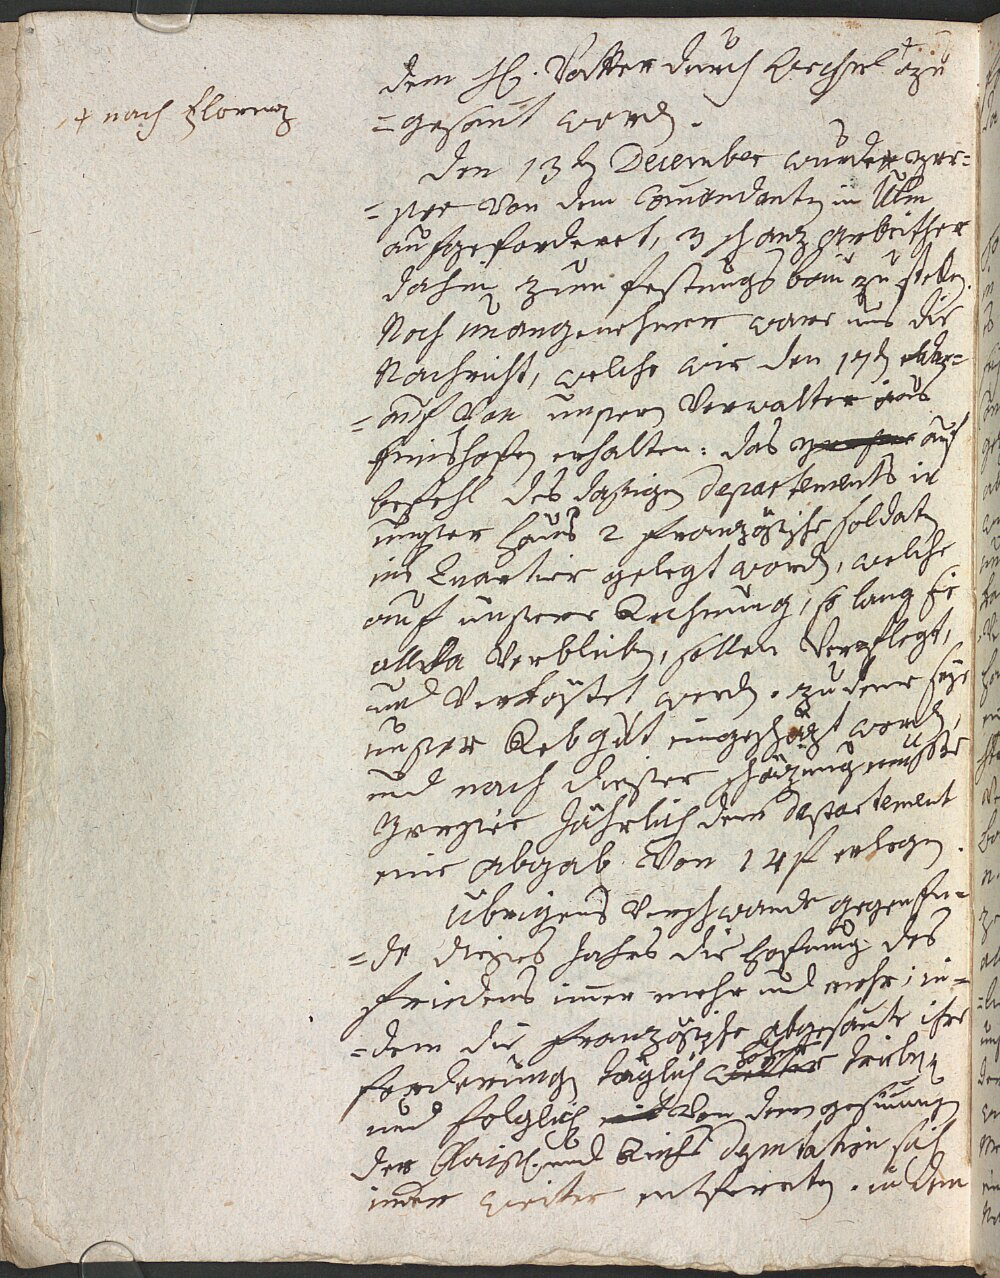 dem H. Vatter durch Wechsel + zu
+ nach Florenz
= gesant word.
den 13t December wurden wir
= von dem Comendanten in Ulm
aufgefordert, 3 schanz arbeither
dahin zum festungs bau zu stellen.
Noch unangenehmer ware uns die
Nachricht, welche wir den 17t
= auf von unserm Verwalter aus
erhalten: das auf
befehl des dasigen Departements in
unser Haus 2 französische soldaten
ins Quartier gelegt worden, welche
auf unsere Rechnung, so lang sie
allda verbleiben, sollen verpflegt,
und verköstet werden. zu deme seye
unser Rebgut eingeschäzt worden,
und nach dieser schäzung müsste
jährlich dem departement
eine abgab von 14 f erlegen.
Übrigens verschwande gegen En=
= de dieses Jahrs die Hofnung des
Friedens imer mehr und mehr; in=
= dem die französische abgesante ihre
forderungen täglich höher trieben
und folglich von dem gesinungen
der Reichs Deputation sich
imer weiter entfernten. in dem